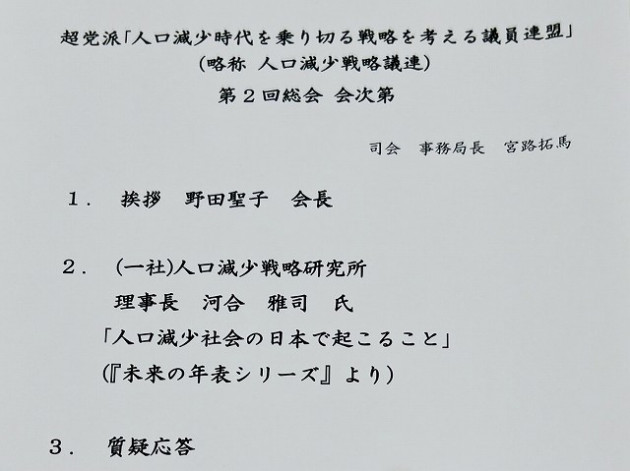 超党派「人口減少時代を乗り切る戦略を考える議員連盟」
(略称 人口減少戦略議連)
第2回総会 会次第
司会 事務局長 宮路拓馬
1. 挨拶 野田聖子 会長
2. (一社)人口減少戦略研究所
理事長 河合 雅司 氏
「人口減少社会の日本で起こること」
(『未来の年表シリーズ』より)
3. 質疑応答